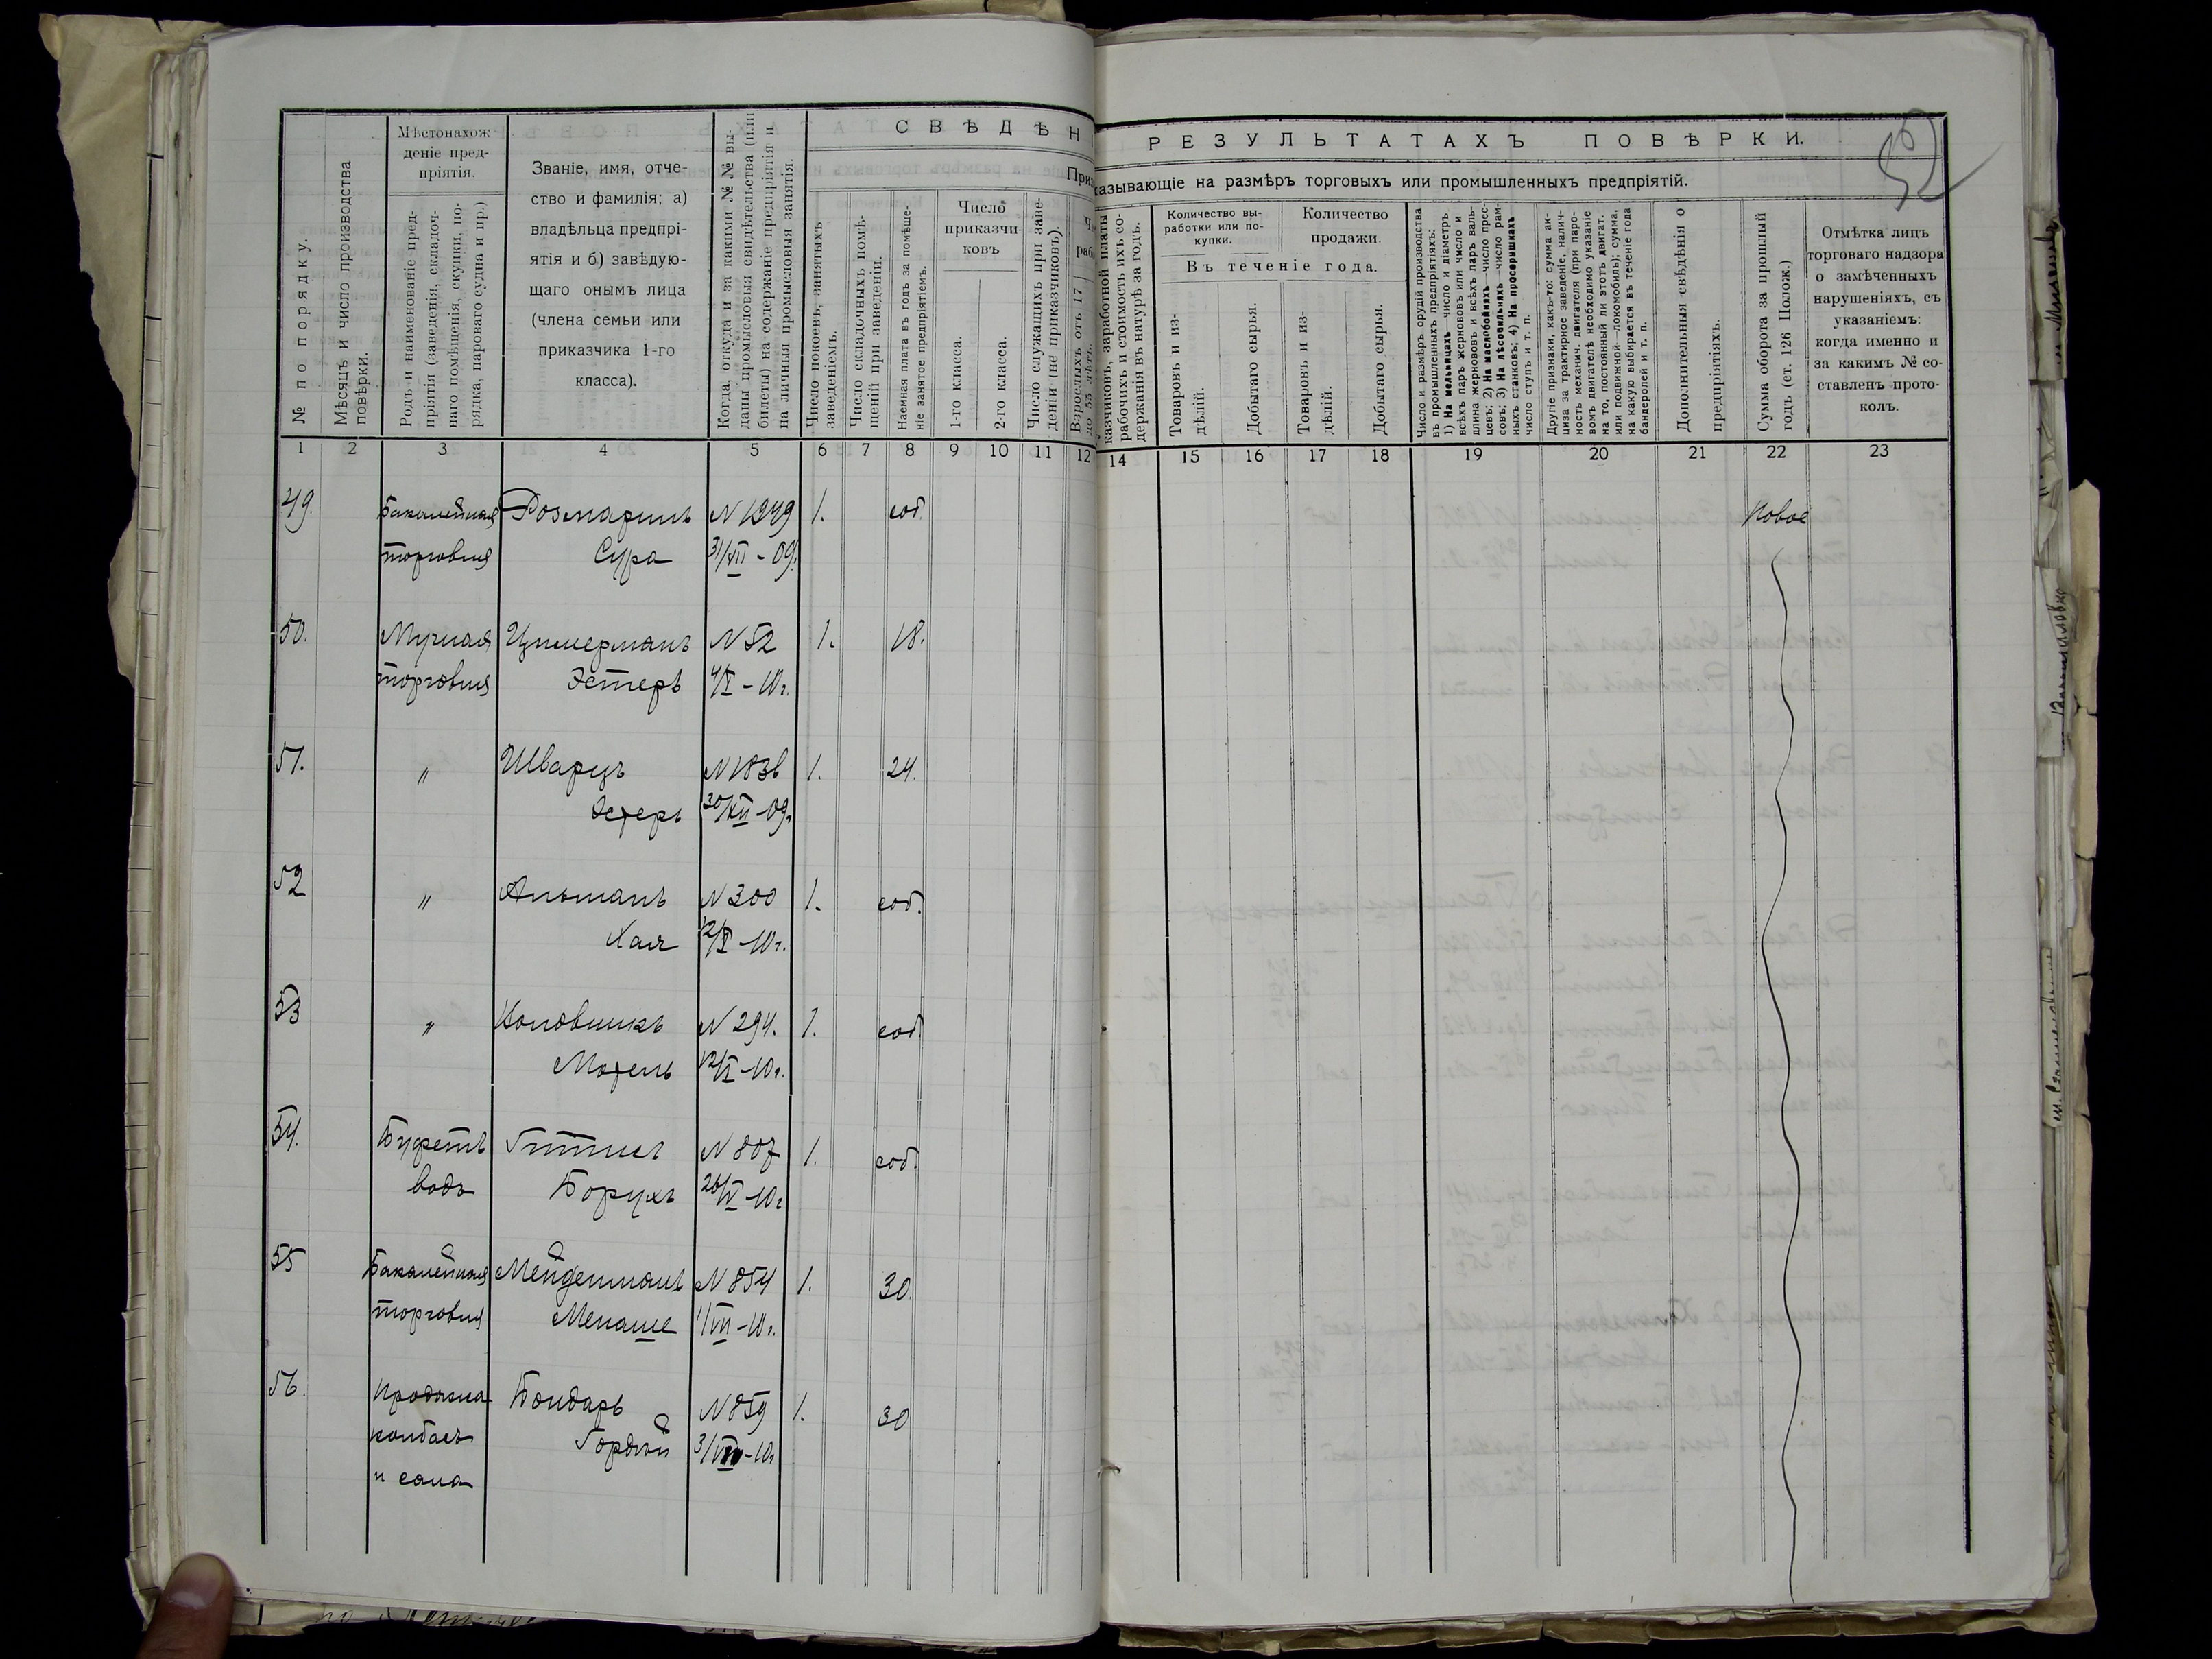 52
СВѢДѢН
РЕЗУЛЬТАТАХЪ ПОВѢРКИ.
Приз
казывающіе на размѣръ торговыхъ или промышленныхъ предпріятій.
№ по порядку.
Мѣсяцъ и число производства
повѣрки.
Мѣстонахож
деніе пред-
пріятія.
Родъ и наименованіе пред-
пріятія (заведенія, складоч-
наго помѣщенія, скупки, по-
рядка, пароваго судна и пр.)
Званіе, имя, отче-
ство и фамилія; а)
владѣльца предпрі-
ятія и б) завѣдую-
щаго онымъ лица
(члена семьи или
приказчика 1-го
класса).
Когда, откуда и за какими №№ вы-
даны промысловыя свидѣтельства (или
билеты) на содержаніе предпріятія и
на личныя промысловыя занятія.
Число покоевъ, занятыхъ
заведеніемъ.
Число складочныхъ помѣ-
щеній при заведеніи.
Наемная плата въ годъ за помѣще-
ніе занятое предпріятіемъ.
Число
приказчи-
ковъ
1-го класса.
2-го класса.
Число служащихъ при заве-
деніи (не приказчиковъ).
Взрослыхъ отъ 17
до 55 лѣтъ.
казчиковъ, заработной платы
рабочихъ и стоимость ихъ со-
держанія въ натурѣ за годъ.
Количество вы-
работки или по-
купки.
Количество
продажи.
Въ теченіе года.
Товаровъ и из-
дѣлій.
Добытаго сырья.
Товаровъ и из-
дѣлій.
Добытаго сырья.
Число и размѣръ орудій производства
въ промышленныхъ предпріятіяхъ:
1) На мельницахъ—число и діаметръ
всѣхъ паръ жернововъ или число и
длина жернововъ и всѣхъ паръ валь-
цевъ; 2) На маслобойняхъ—число прес-
совъ; 3) На лѣсопильняхъ—число рам-
ныхъ станковъ; 4) На просорушняхъ
число ступъ и т. п.
Другіе признаки, какъ-то: сумма ак-
циза за трактирное заведеніе, налич-
ность механич. двигателя (при паро-
вомъ двигателѣ необходимо указаніе
на то, постоянный ли этотъ двигат.
или подвижной—локомобиль); сумма,
на какую выбирается въ теченіе года
бандеролей и т. п.
Дополнительныя свѣдѣнія о
предпріятіяхъ.
Сумма оборота за прошлый
годъ (ст. 126 Полож.)
Отмѣтка лицъ
торговаго надзора
о замѣченныхъ
нарушеніяхъ, съ
указаніемъ:
когда именно и
за какимъ № со-
ставленъ прото-
колъ.
1 2 3 4 5 6 7 8 9 10 11 12 14 15 16 17 18 19 20 21 22 23
49. Бакалейная Розмаринъ N 1949 1. соб. Новое
торговля Сура 31/XII - 09г.
50. Мучная Цимерманъ N 52 1. 18.
торговля Эстеръ 4/I - 10г.
51. " Шварцъ N 1836 1. 24.
Эстеръ 30/XII - 09г.
52 " Альтманъ N 300 1. соб.
Хая 12/I - 10г.
53 " Коповникъ N 294. 1. соб.
Мотель 12/I - 10г.
54. Буфетъ Гитисъ N 807 1. соб.
водъ Борухъ 26/IV - 10г
55 Бакалейная Мейдентанъ N 854 1. 30.
торговля Менаше 1/VII - 10г.
56. Продажа Бондарь N 859 1. 30
колбасъ Гордей 3/VIII - 10г
и сала